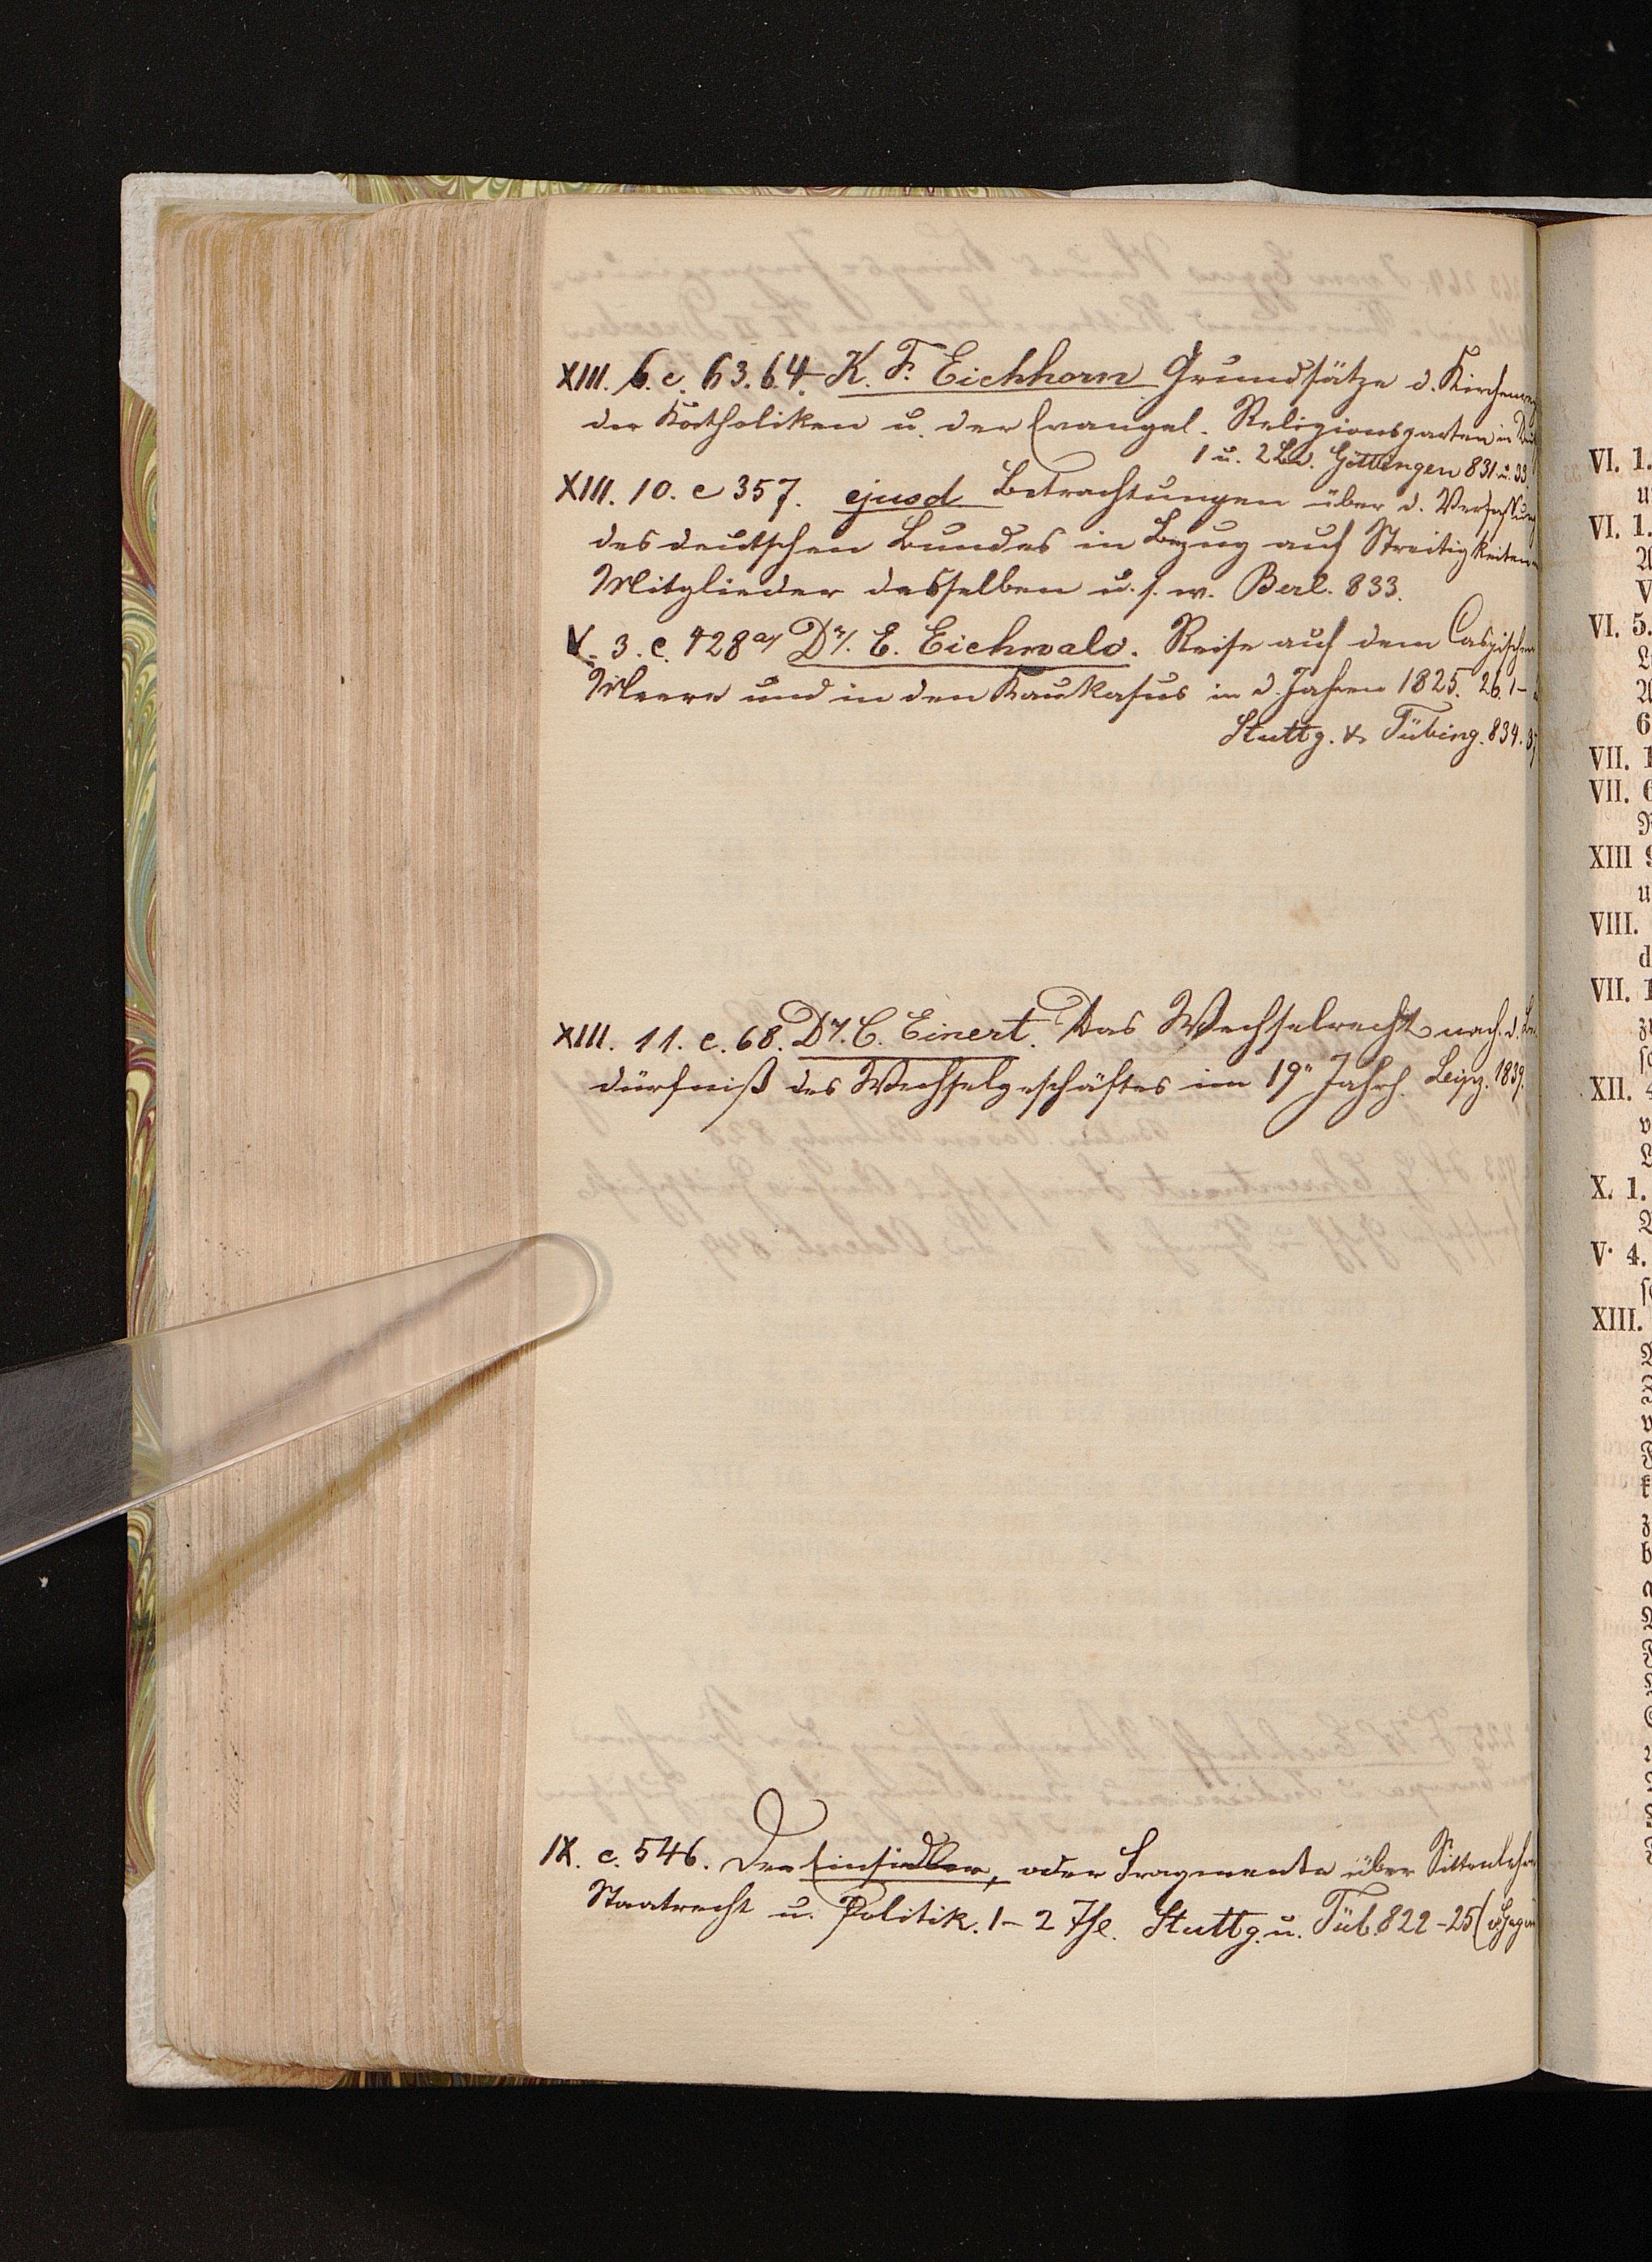 XIII. 6. c. 63. 64. K. F. Eichhorn Grundsätze d. Kirchenre
der Katholiken u. der Evangel. Religionspartei in Deu
1 u. 2 Bd. Göttingen 831 u. 33.
XIII. 10. c 357. ejusd. Betrachtungen über d. Verfassung
des deutschen Bundes in Bezug auf Streitigkeiten
Mitglieder desselben u. s. w. Berl. 833.
V. 3. c. 428 a/ Dr. E. Eichwald. Reise auf dem Caspischen
Meere und in den Kaukasus in d. Jahren 1825. 26. 1–
Stuttg. & Tübing. 834. 37
XIII. 11. c. 68. Dr. C. Einert. Das Wechselrecht nach d. Be
dürfniß des Wechselgeschäftes im 19n Jahrh. Leipz. 1839.
IX. c. 546. Der Einsiedler, oder Fragmente über Sittenlehre
Staatrecht u. Politik. 1–2 Thl. Stuttg. u. Tüb. 822–25
VI. 1.
VI. 1.
V
VI. 5.
6
VII. 1
VII. 6
XIII 9
u
VIII.
d
VII. 1
XII. 4
X. 1.
V. 4.
XIII.